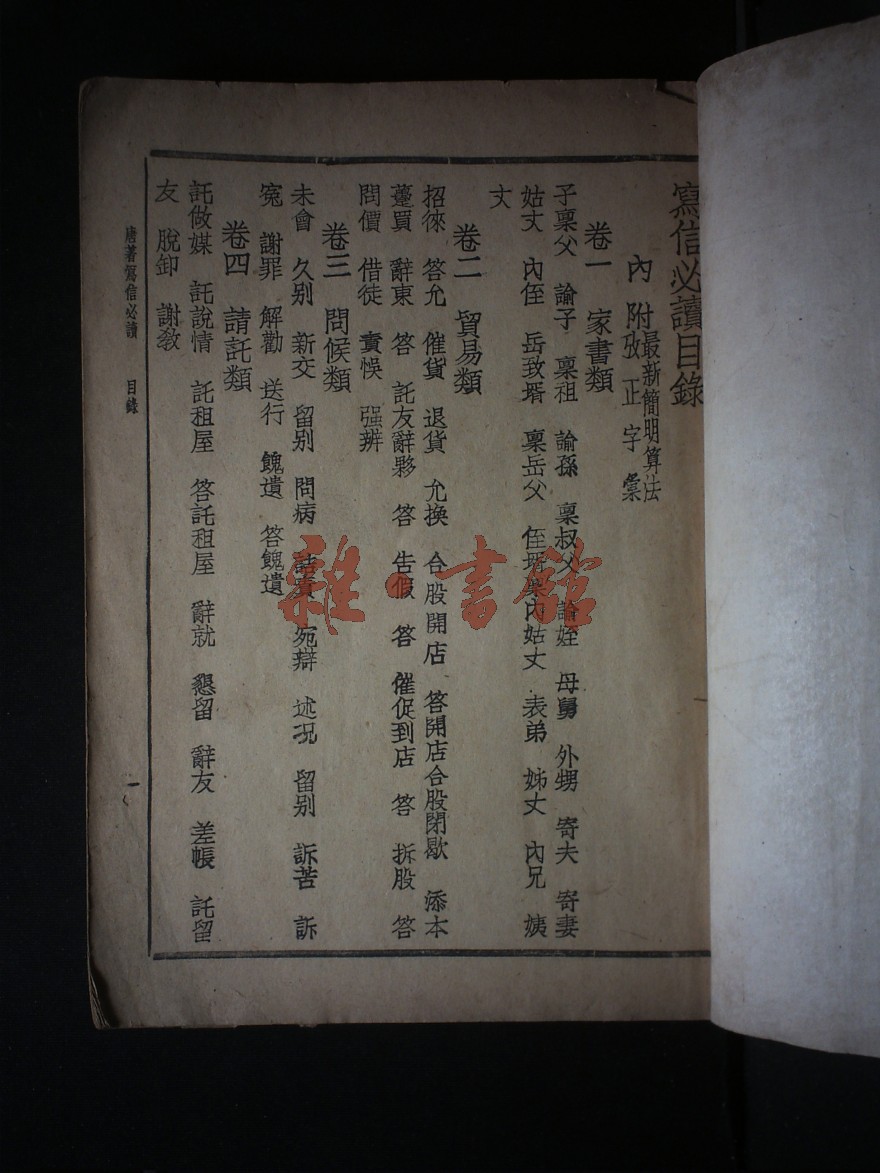 寫信必讀目錄
內附最新簡明算法
攷正字彙
卷一 家書類
子稟父 諭子 稟祖 諭孫 稟叔父 諭姪 母舅 外甥 寄夫 寄妻
姑丈 內侄 岳致壻 稟岳父 侄壻柴內姑丈 表弟 姊丈 內兄 姨
丈
卷二 貿易類
招徠 答允 催貨 退貨 允換 合股開店 答開店合股閉歇 添本
躉買 辭東 答 託友辭夥 答 告假 答 催促到店 答 拆股 答
問價 借徒 責悞 强辨
卷三 問候類
未會 久别 新交 留别 問病 詰責 宛辯 述况 留别 訴苦 訴
冤 謝罪 解勸 送行 餽遺 答餽遺
卷四 請託類
託做媒 託說情 託租屋 答託租屋 辭就 懇留 辭友 差帳 託留
友 脫卸 謝教
唐著寫信必讀 目錄 一
雜書館